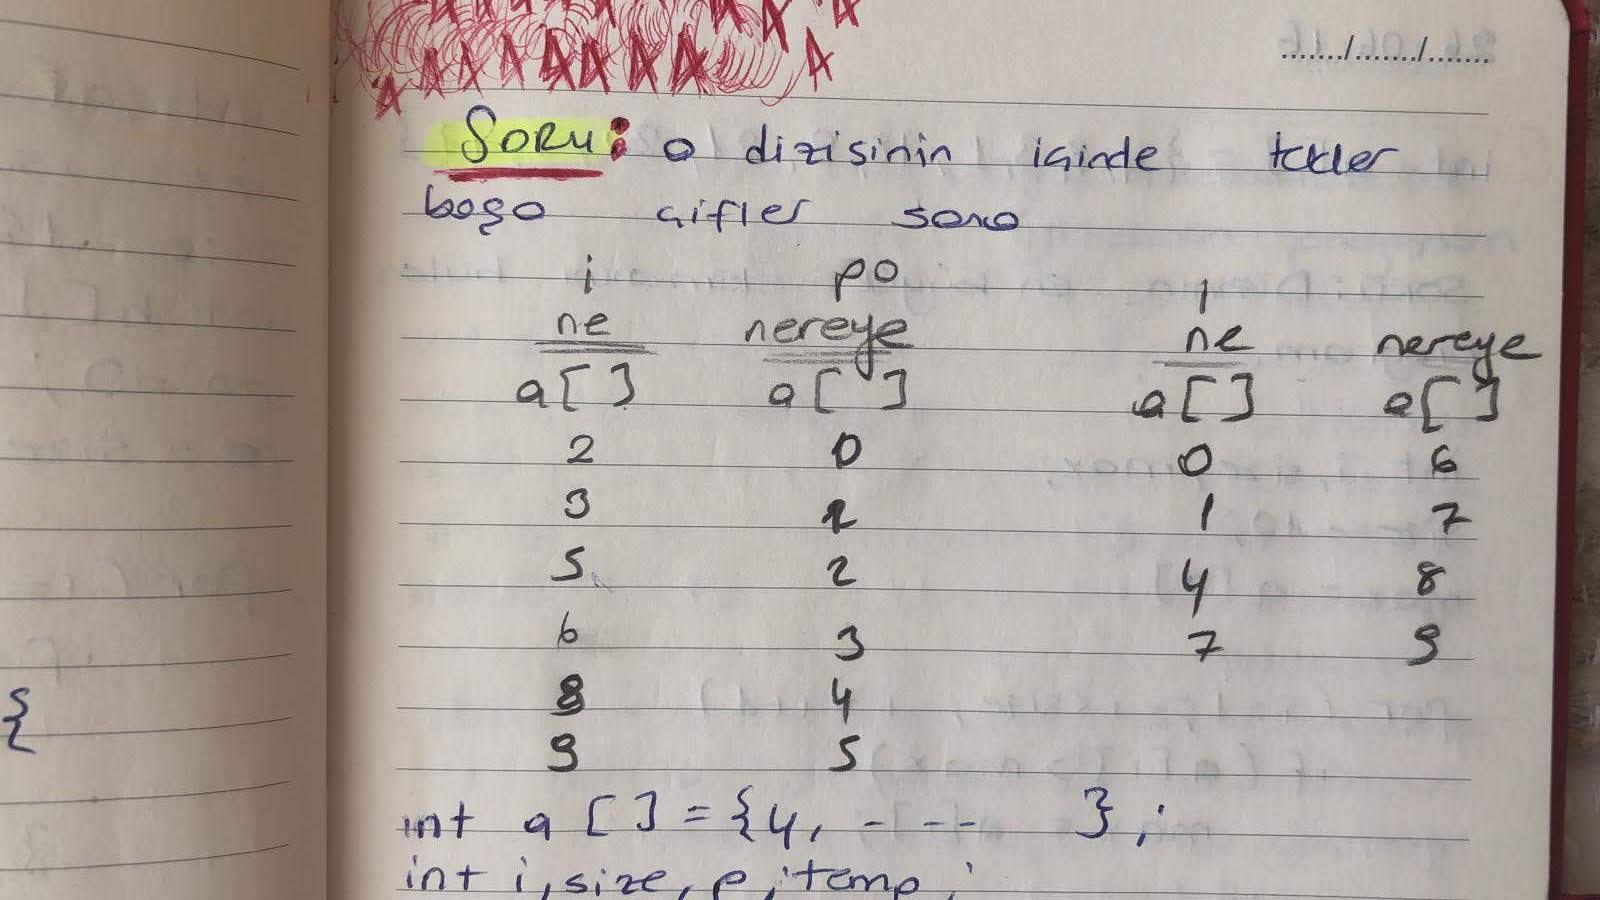 ......./......./.......
SORU: a dizisinin içinde tekler
başa çiftler sona
i po i
ne nereye ne nereye
a[ ] a[ ] a[ ] a[ ]
2 0 0 6
3 1 1 7
5 2 4 8
6 3 7 9
8 4
9 5
int a[ ]={4, - - - - };
int i, size, p, temp;
{